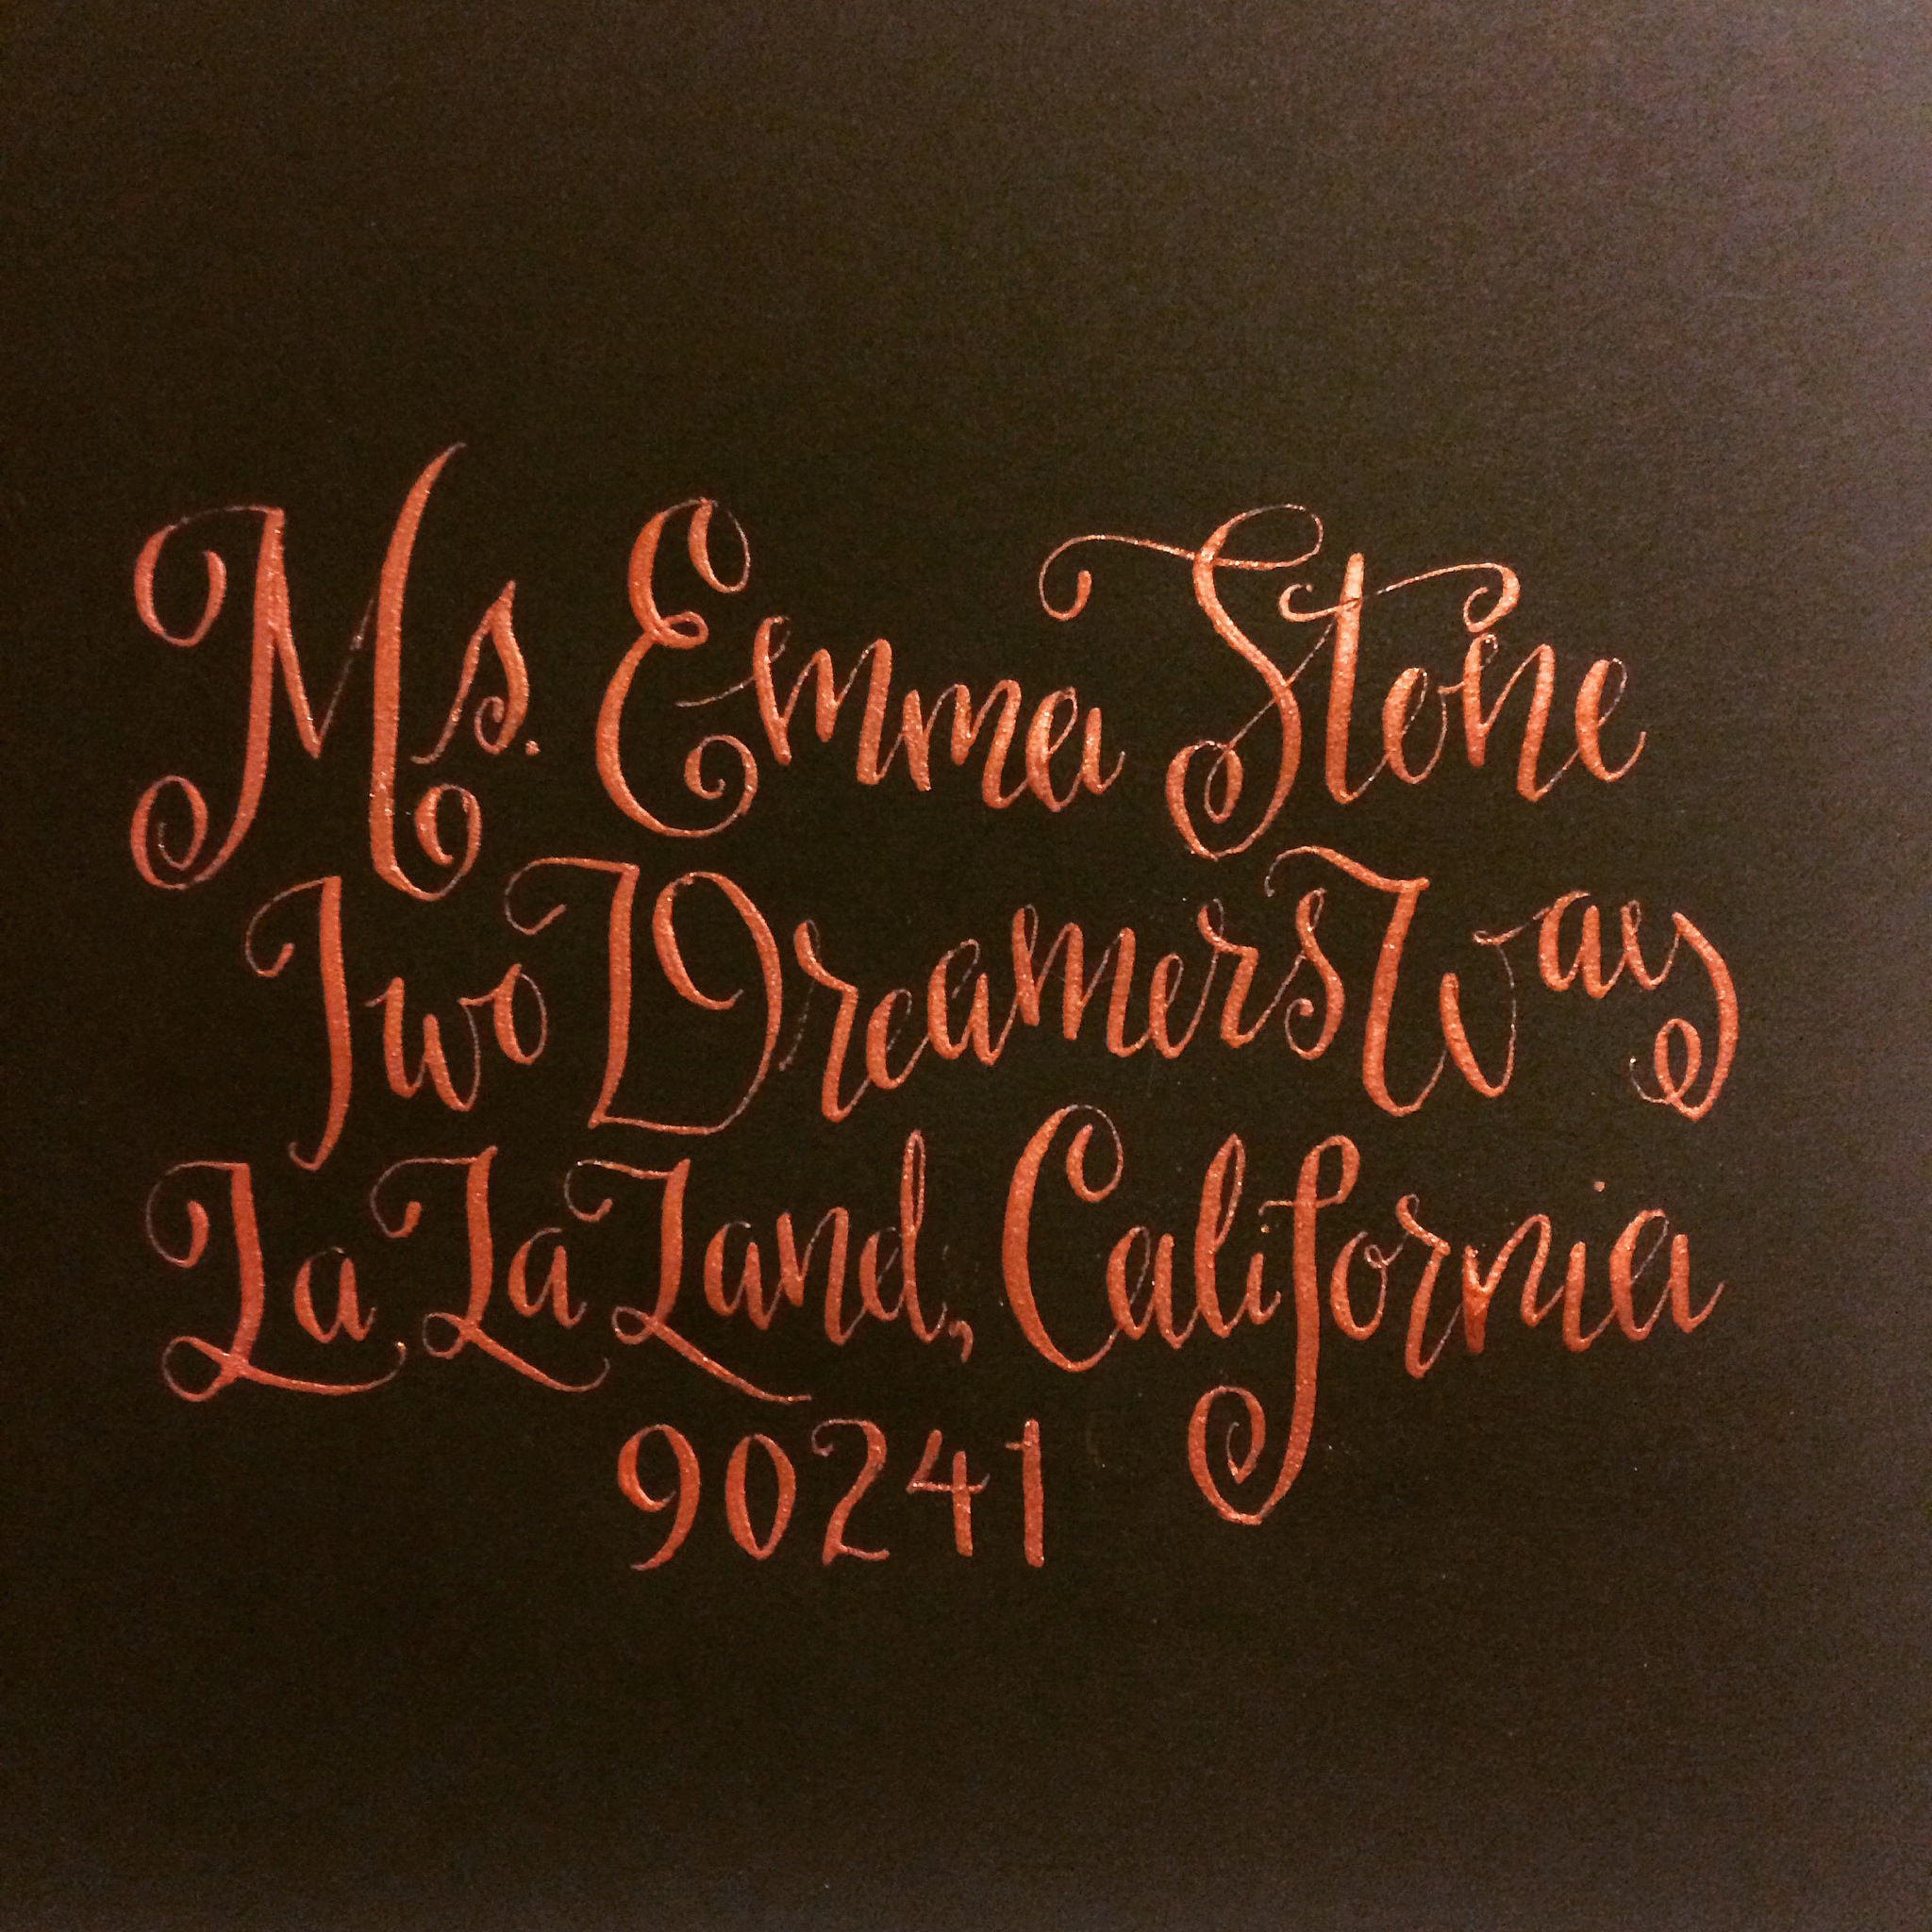 Ms. Emma Stone
Two Dreamers Way
La La Land, California
90241